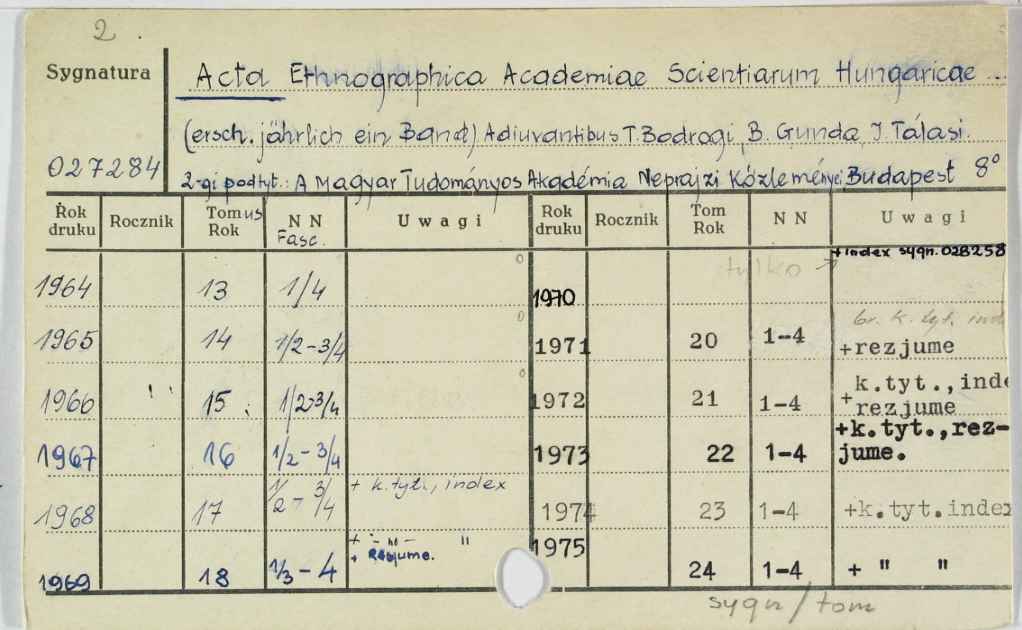 2.
Sygnatura
Acta Ethnographica Academiae Scientiarum Hungaricae
(ersch. jährlich ein Band) Adiuvantibus T. Bodrogi, B. Gunda, I. Tálasi.
027284
2-gi podtyt.: A Magyar Tudományos Akadémia Néprajzi Közleményei Budapest 8°
Rok druku Rocznik Tomus Rok NN Fasc. Uwagi Rok druku Rocznik Tom Rok NN Uwagi
tylko + index sygn. 02B258
1964 13 1/4 1970
br. k. tyt. ind
1965 14 1/2-3/4 1971 20 1-4 +rezjume
1966 15 1/2-3/4 1972 21 1-4 +k.tyt.,inde
rezjume
1967 16 1/2-3/4 1973 22 1-4 +k.tyt.,rez-
jume.
1968 17 1/2-3/4 + k.tyt., index 1974 23 1-4 +k.tyt.index
+ -"- "
1969 18 1/3-4 + Rezjume. 1975 24 1-4 + " "
sygn/tom